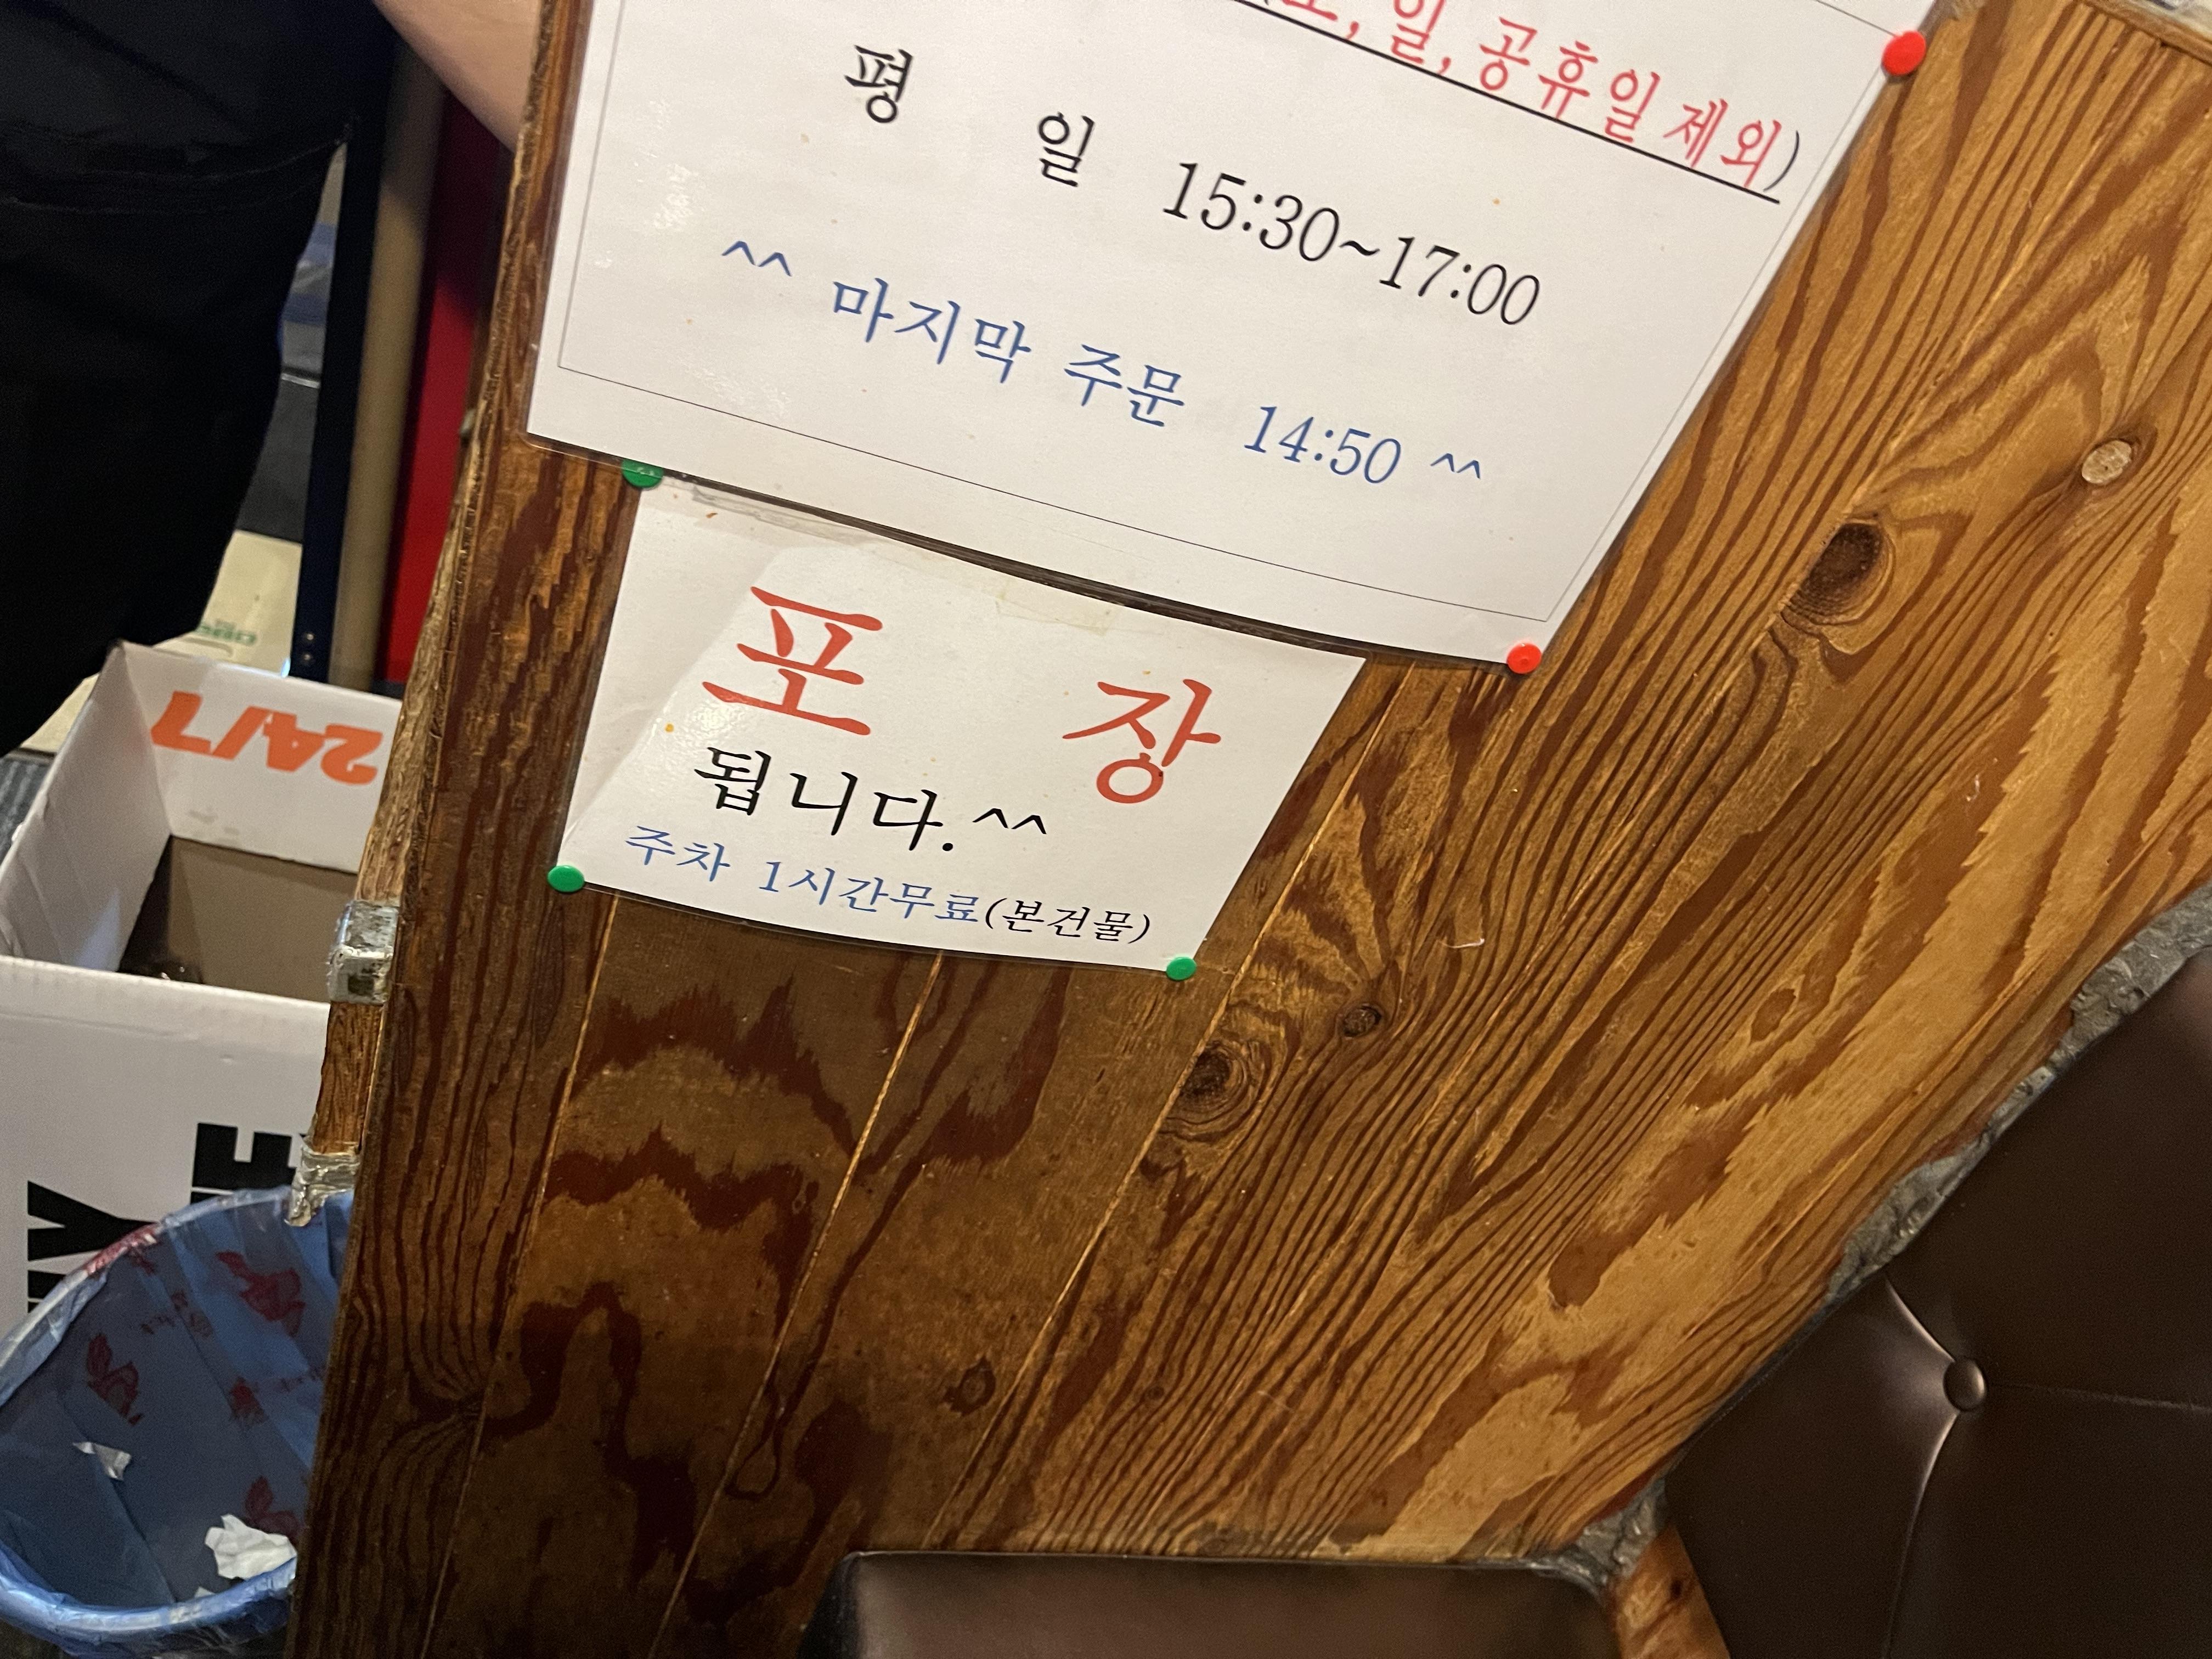 일, 공휴일 제외)
평 일 15:30~17:00
^^ 마지막 주문 14:50 ^^
포 장
됩니다.^^
주차 1시간무료(본건물)
24/7